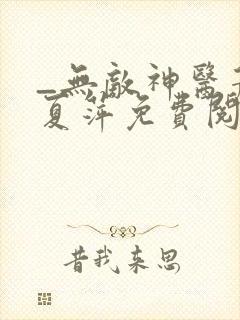 _無敵神醫
夏萍免費閱
昔我来思